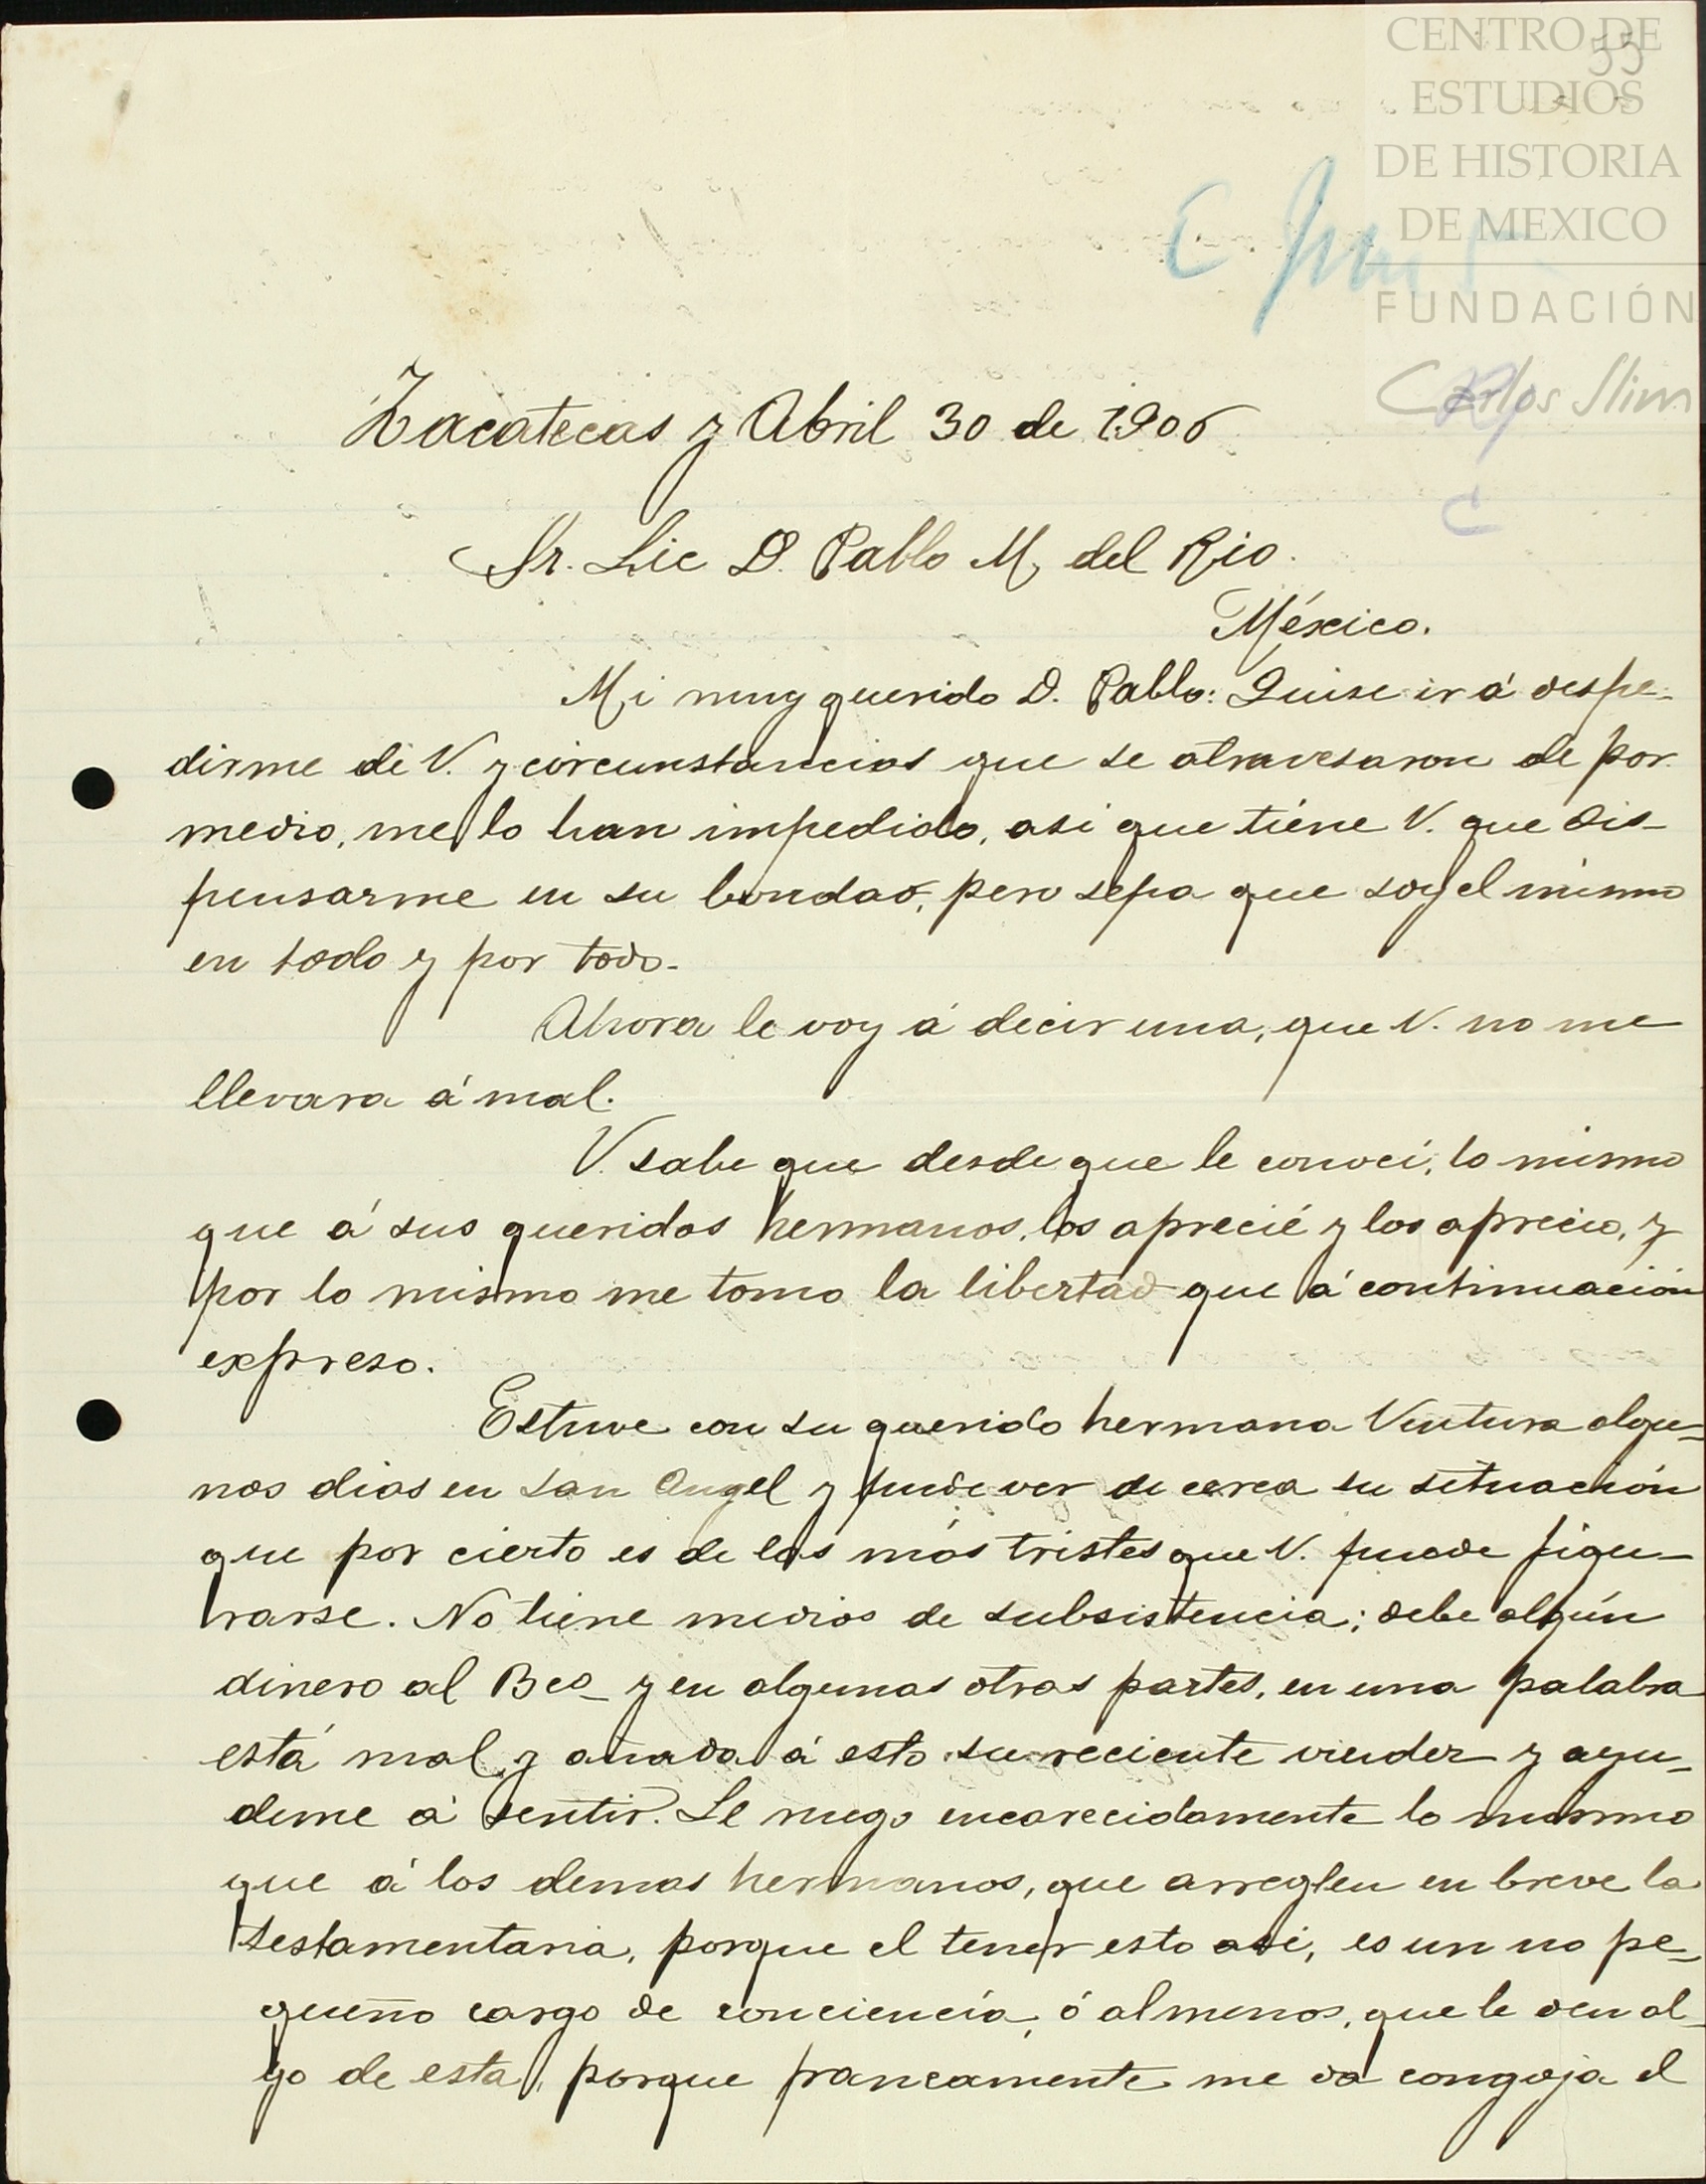 CENTRO DE
ESTUDIOS
DE HISTORIA
DE MEXICO
FUNDACIÓN
Carlos Slim
55
C
Zacatecas y Abril 30 de 1906
Sr. Lic D. Pablo M. del Rio.
México.
Mi muy querido D. Pablo: Quise ir á despe-
dirme de V. y circunstancias que se atravesaron de por
medio, me lo han impedido, asi que tiene V. que dis-
pensarme en su bondad, pero sepa que soy el mismo
en todo y por todo.
Ahora le voy á decir una, que V. no me
llevara á mal.
V. sabe que desde que le conocí, lo mismo
que á sus queridos hermanos, los aprecié y los aprecio, y
por lo mismo me tomo la libertad que á continuación
expreso.
Estuve con su querido hermano Ventura algu-
nos dias en San Angel y pude ver de cerca su situación
que por cierto es de las más tristes que V. puede figu-
rarse. No tiene medios de subsistencia; debe algún
dinero al Bco_ y en algunas otras partes, en una palabra
está mal y añada á esto su reciente viudez y ayu-
deme á sentir. Le ruego encarecidamente lo mismo
que á los demas hermanos, que arreglen en breve la
testamentaria, porque el tener esto asi, es un no pe-
queño cargo de conciencia, ó al menos, que le den al-
go de esta, porque francamente me da congoja el